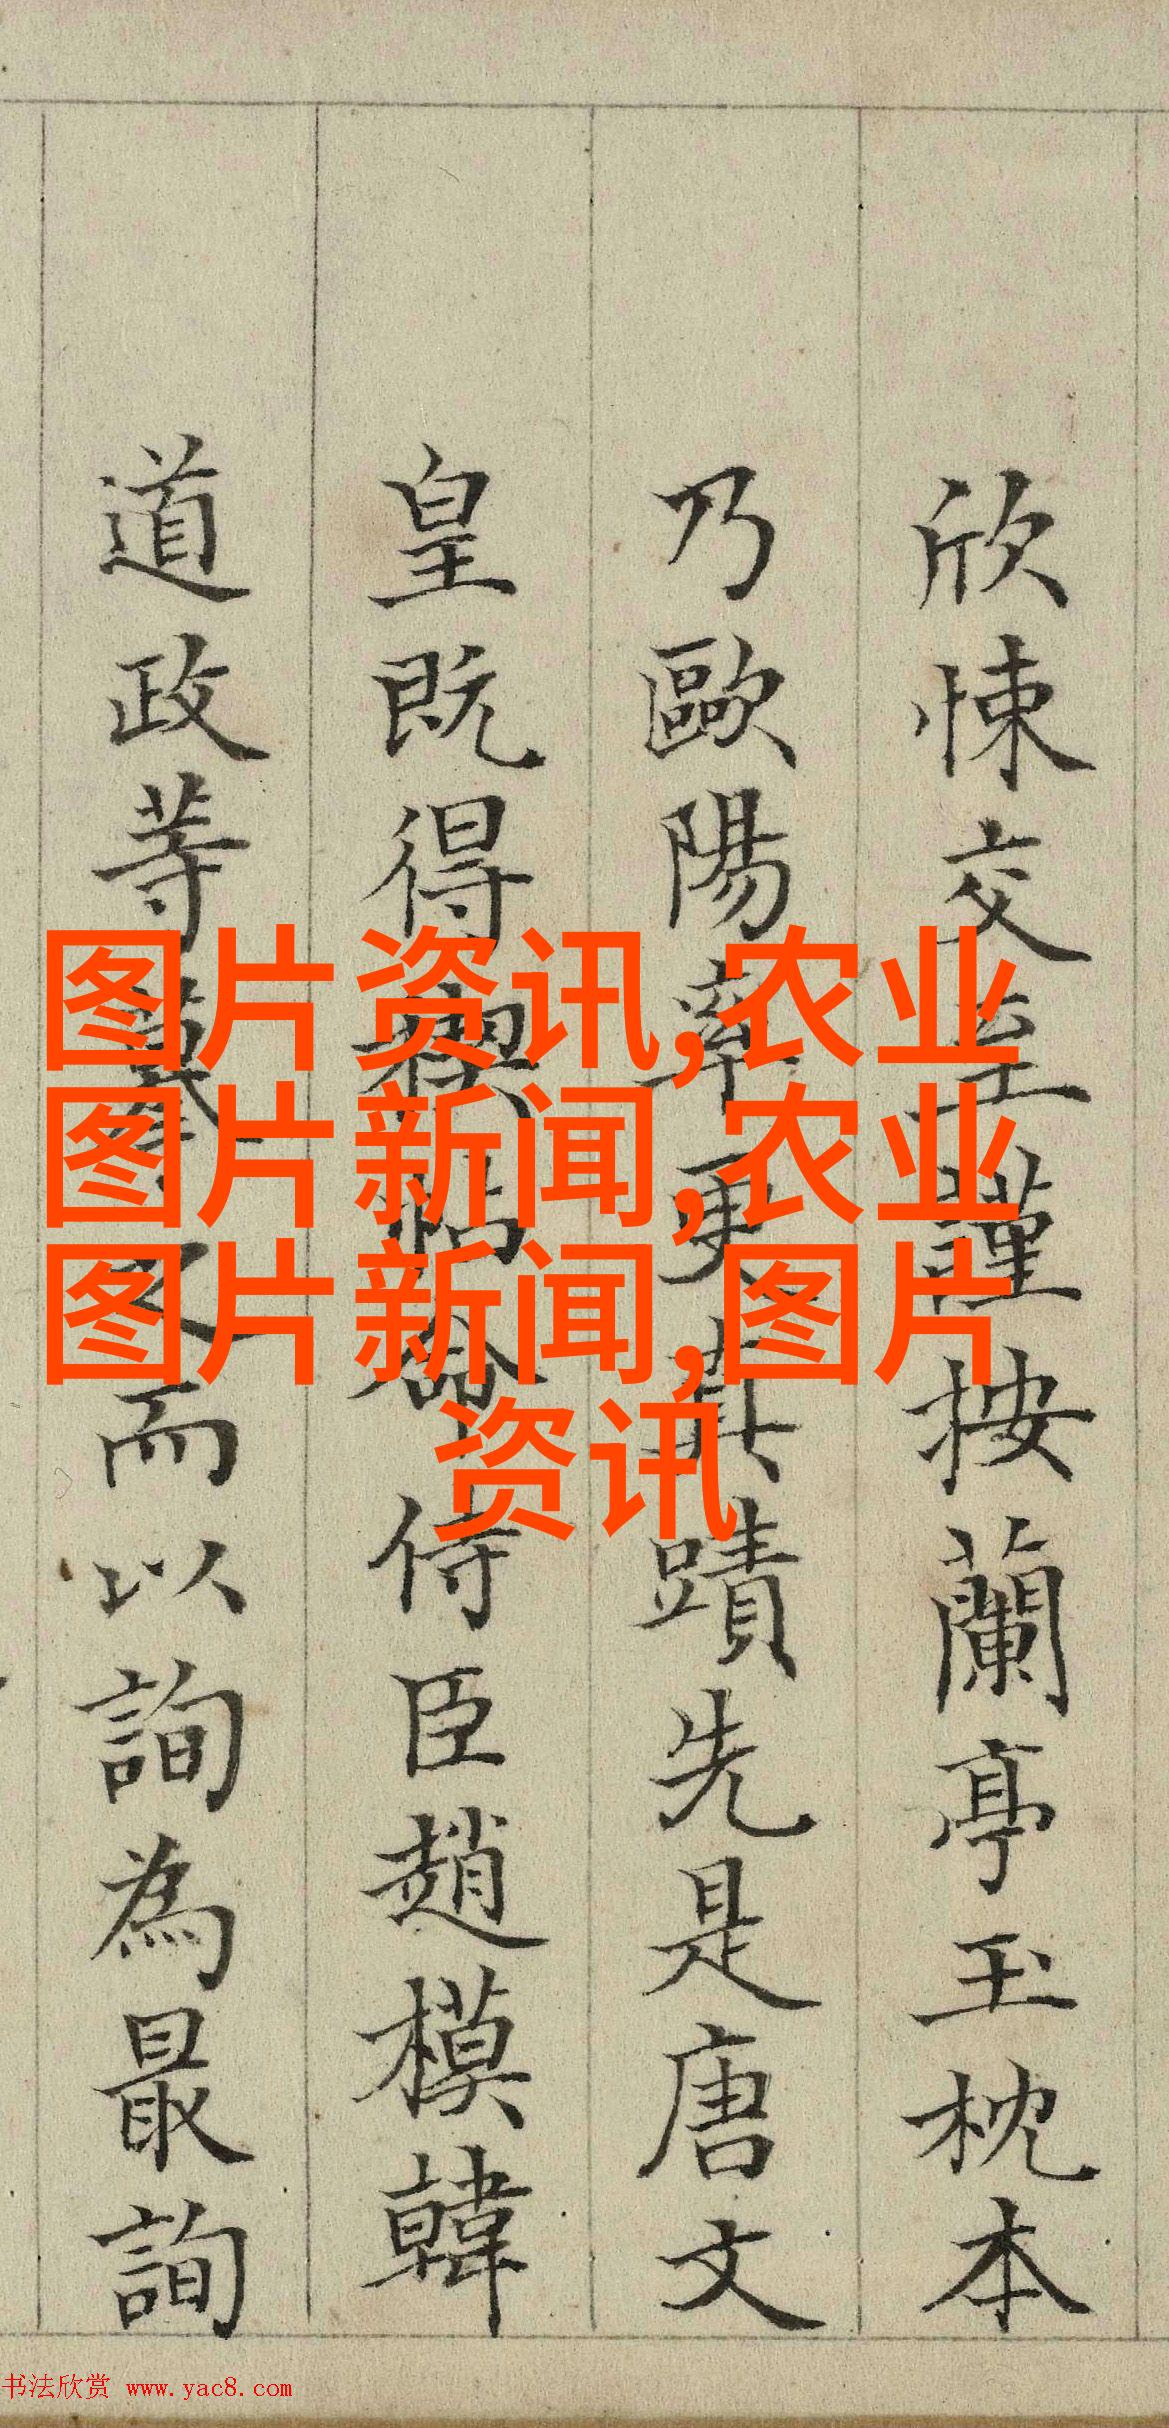 欣悚交至謹按蘭亭玉枕本
乃歐陽率更真蹟先是唐文
皇既得禊帖命侍臣趙模韓
道政等摹之而以詢為最詢
图片资讯,农业
图片新闻,农业
图片新闻,图片
资讯
书法欣赏 www.yac8.com